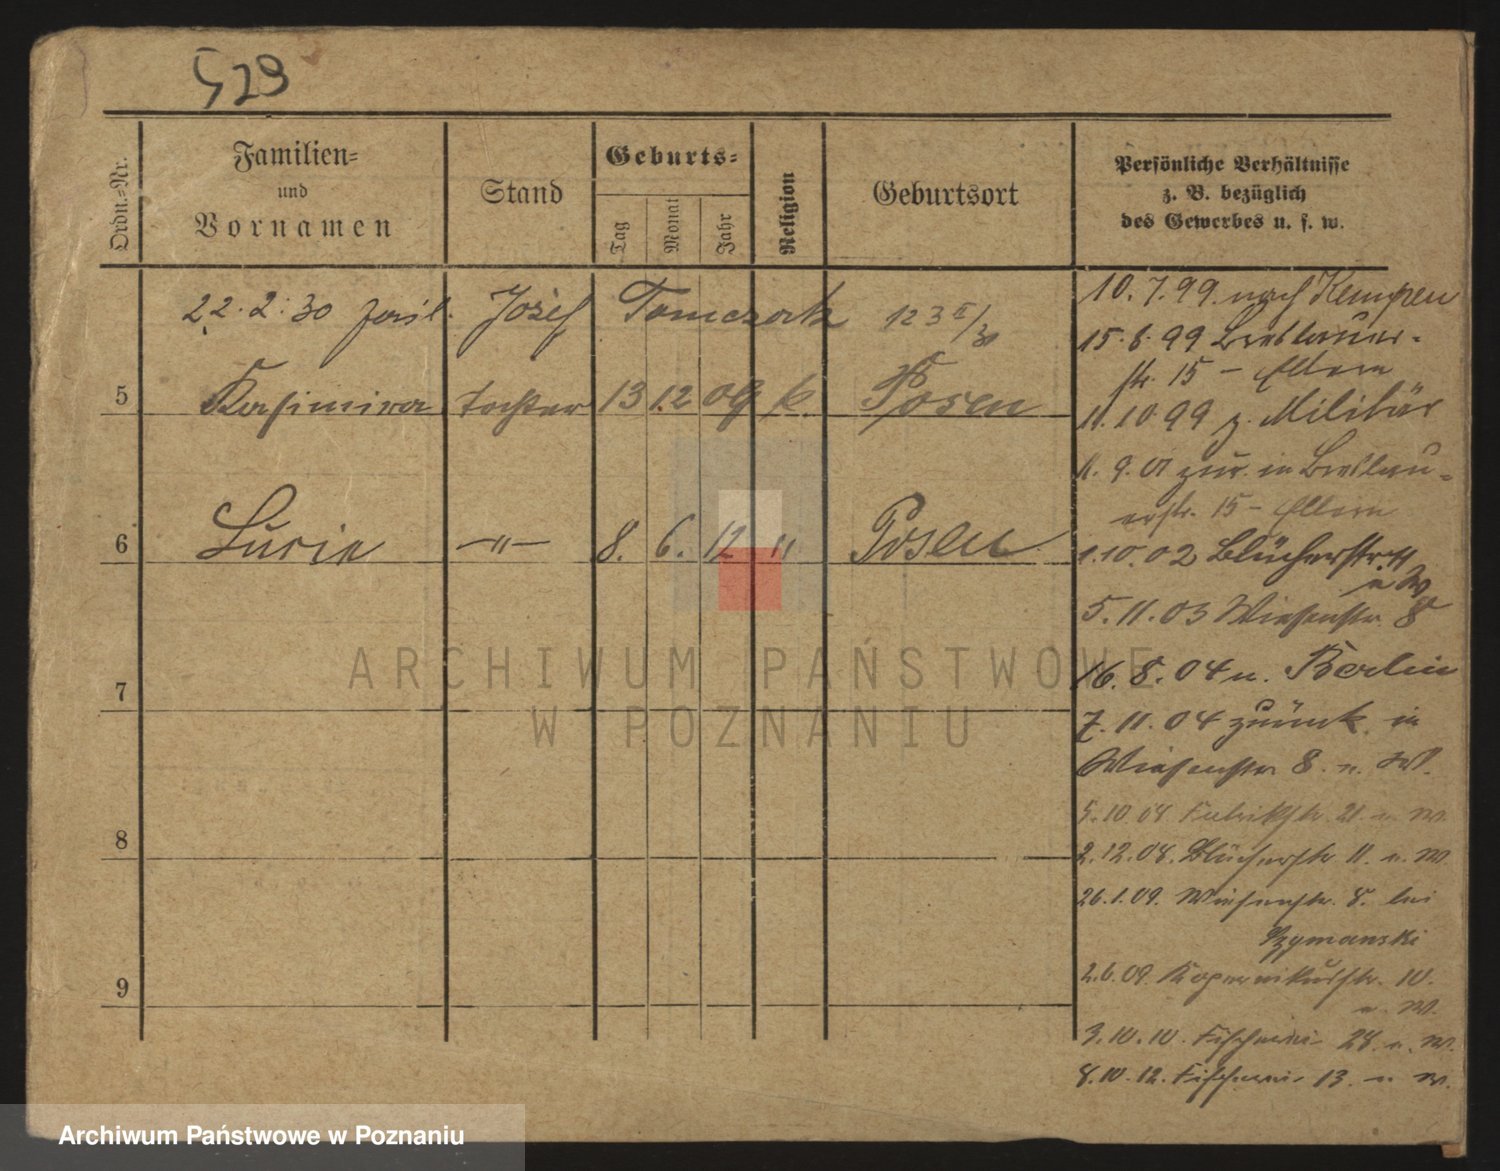 529
Ordn.-Nr.
Familien-
und
Vornamen
Stand
Geburts-
Tag
Monat
Jahr
Religion
Geburtsort
Persönliche Verhältnisse
z. B. bezüglich
des Gewerbes u. s. w.
22.2.30 Józef Tomczak 123 II/30
5 Kasimira Tochter 13 12 09 k Posen
6 Lucie -"- 8. 6. 12 " Posen
7
8
9
10.7.99 nach Kempen
15.8.99 Breslauer-
str. 15 - Eltern
11.10.99 z. Militär
11.9.01 zur. in Breslau-
erstr. 15 - Eltern
1.10.02 Blücherstr. 11
u W
5.11.03 Wiesenstr. 8
16.8.04 n. Berlin
7.11.04 zurück in
Wiesenstr 8. u. W.
5.10.08 Fabrikstr. 21 u W.
2.12.08. Blücherstr 11. u. W.
26.1.09. Wiesenstr. 8. bei
Szymanski
2.6.09. Kopernikusstr. 10.
u. W.
3.10.10. Fischerei 28 u. W.
8.10.12. Fischerei 13. u W.
ARCHIWUM PAŃSTWOWE
W POZNANIU
Archiwum Państwowe w Poznaniu